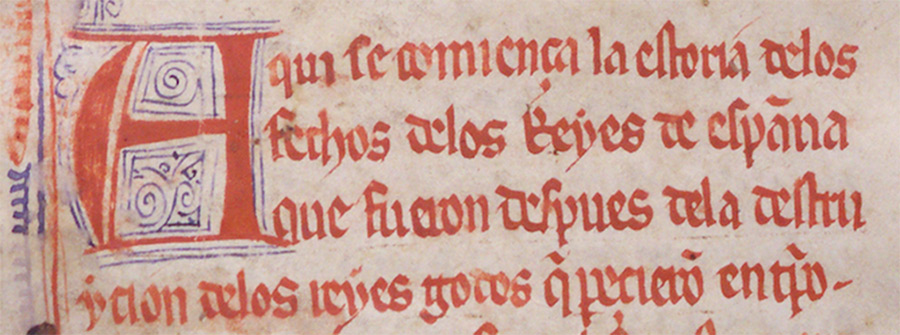 Aqui se comiença la estoria delos
fechos delos Reyes de españa
que fueron despues dela destru
ycion delos reyes godos q̃ p̲ecierõ en